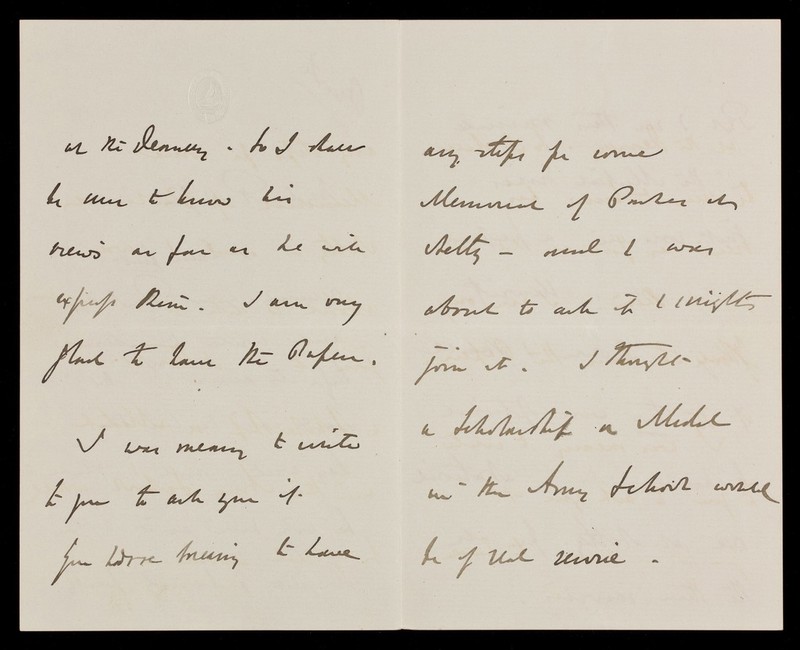 at the Deanery. So I shall
be sure to know his
views as far as he will
express them. I am very
glad to have the Papers.
I was meaning to write
to you to ask you if
you were to have
any steps for some
Memorial of Parkes at
Netley – and I was
about to ask if I might
join it. I thought
a Scholarship or Medal
in the Army School would
be of real service.